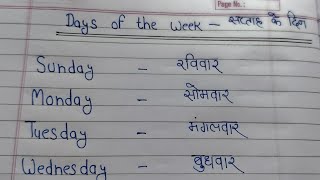 Page No.:
Days of the Week - सप्ताह के दिन
Sunday - रविवार
Monday - सोमवार
Tuesday - मंगलवार
Wednesday - बुधवार